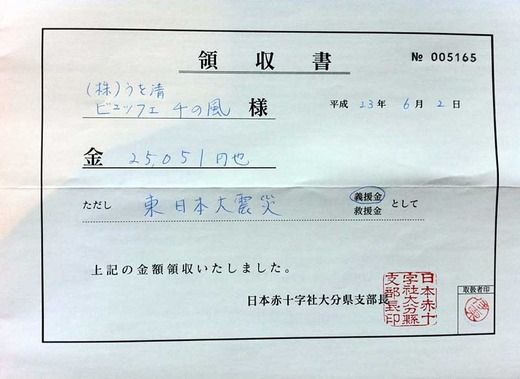 領収書
№ 005165
(株)うを清
ビュッフェ 千の風 様
平成 23年 6月 2日
金 25,051円也
ただし 東日本大震災 義援金 救援金 として
上記の金額領収いたしました。
日本赤十字社大分県支部長
日本赤十
字社大分縣
支部長印
取扱者印